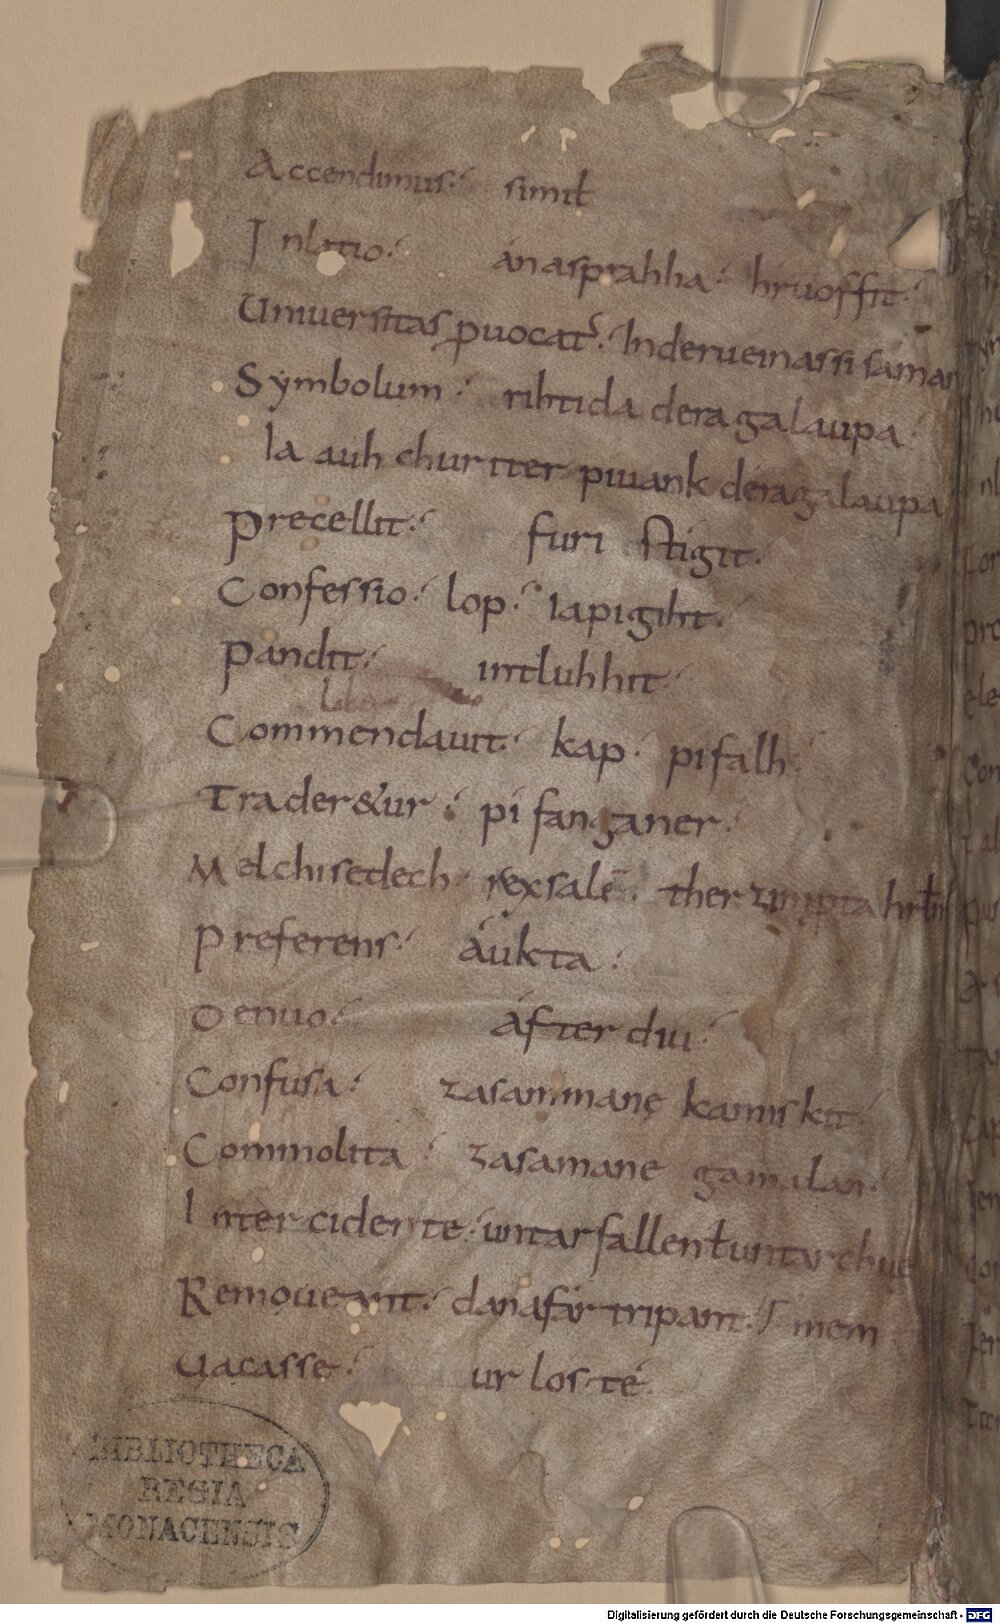 Accendimus : simił
Inlatio : ánasprahha : hruoffit :
Uniuersitas ꝓuocat̄ : Inderueinassi saman
Symbolum : rihtida dera galaupa :
la auh churtter piuank dera galaupa
Precellit : furi stigit :
Confessio : lop : ia pigiht :
Pandit : intluhhit :
liber
Commendauit : kap : pifalh :
Trader&ur : pi fanganer :
Melchisedech rex salē : ther
Preferens : áukta :
Denuo : áfter diu :
Confusa : zasammane kamiskit :
Commolita : zasamane gamalan :
Intercidente : untarfallenł untarchue
Remoueant : danafártripant : mem
Uacasse : urloste :
BIBLIOTHECA
REGIA
MONACENSIS
Digitalisierung gefördert durch die Deutsche Forschungsgemeinschaft - DFG